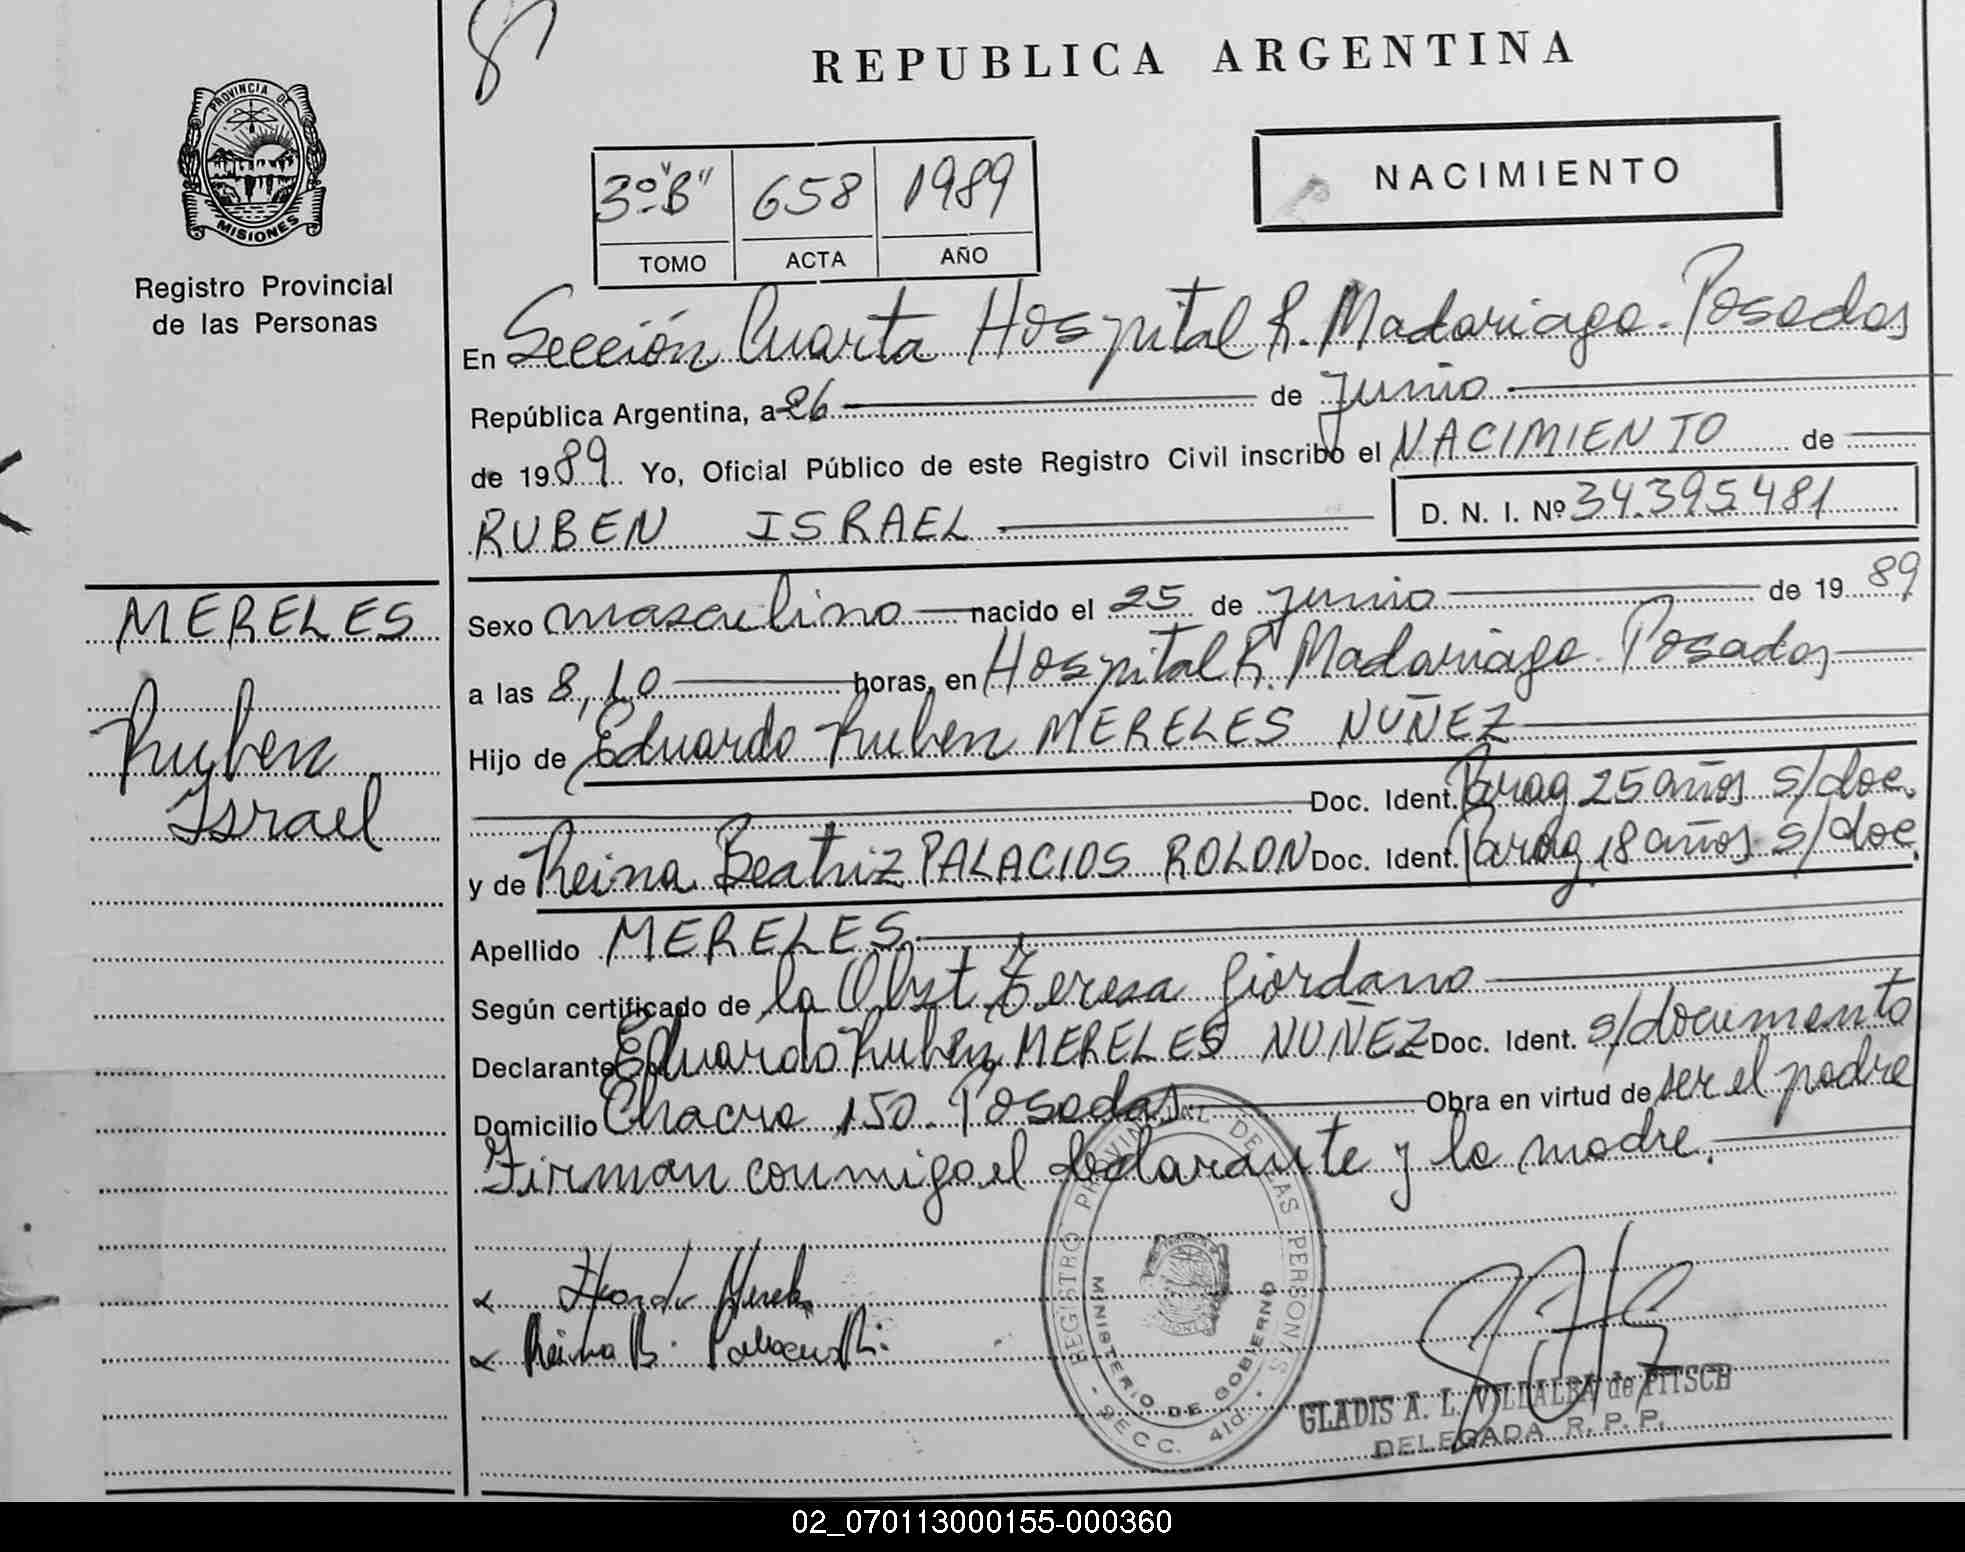 REPUBLICA ARGENTINA
PROVINCIA DE
MISIONES
Registro Provincial
de las Personas
3º "B" 658 1989
TOMO ACTA AÑO
NACIMIENTO
En Sección Cuarta Hospital R. Madariaga. Posadas
República Argentina, a 26 de Junio
de 1989 Yo, Oficial Público de este Registro Civil inscribo el NACIMIENTO de
RUBEN ISRAEL D. N. I. Nº 34.395.481
MERELES
Ruben
Israel
Sexo masculino nacido el 25 de Junio de 1989
a las 8,10 horas, en Hospital R. Madariaga. Posadas
Hijo de Eduardo Ruben MERELES NUÑEZ
Doc. Ident. Parag 25 años s/doc.
y de Reina Beatriz PALACIOS ROLON Doc. Ident. Parag. 18 años s/doc.
Apellido MERELES
Según certificado de la Obst Teresa Giordano
Declarante Eduardo Ruben MERELES NUÑEZ Doc. Ident. s/documento
Domicilio Chacra 150. Posadas Obra en virtud de ser el padre
Firman conmigo el declarante y la madre.
Reina B.
REGISTRO PROVINCIAL DE LAS PERSONAS
MINISTERIO DE GOBIERNO
SECC. 4ta.
GLADIS A. L. VILLALBA de PITSCH
DELEGADA R. P. P.
02_070113000155-000360